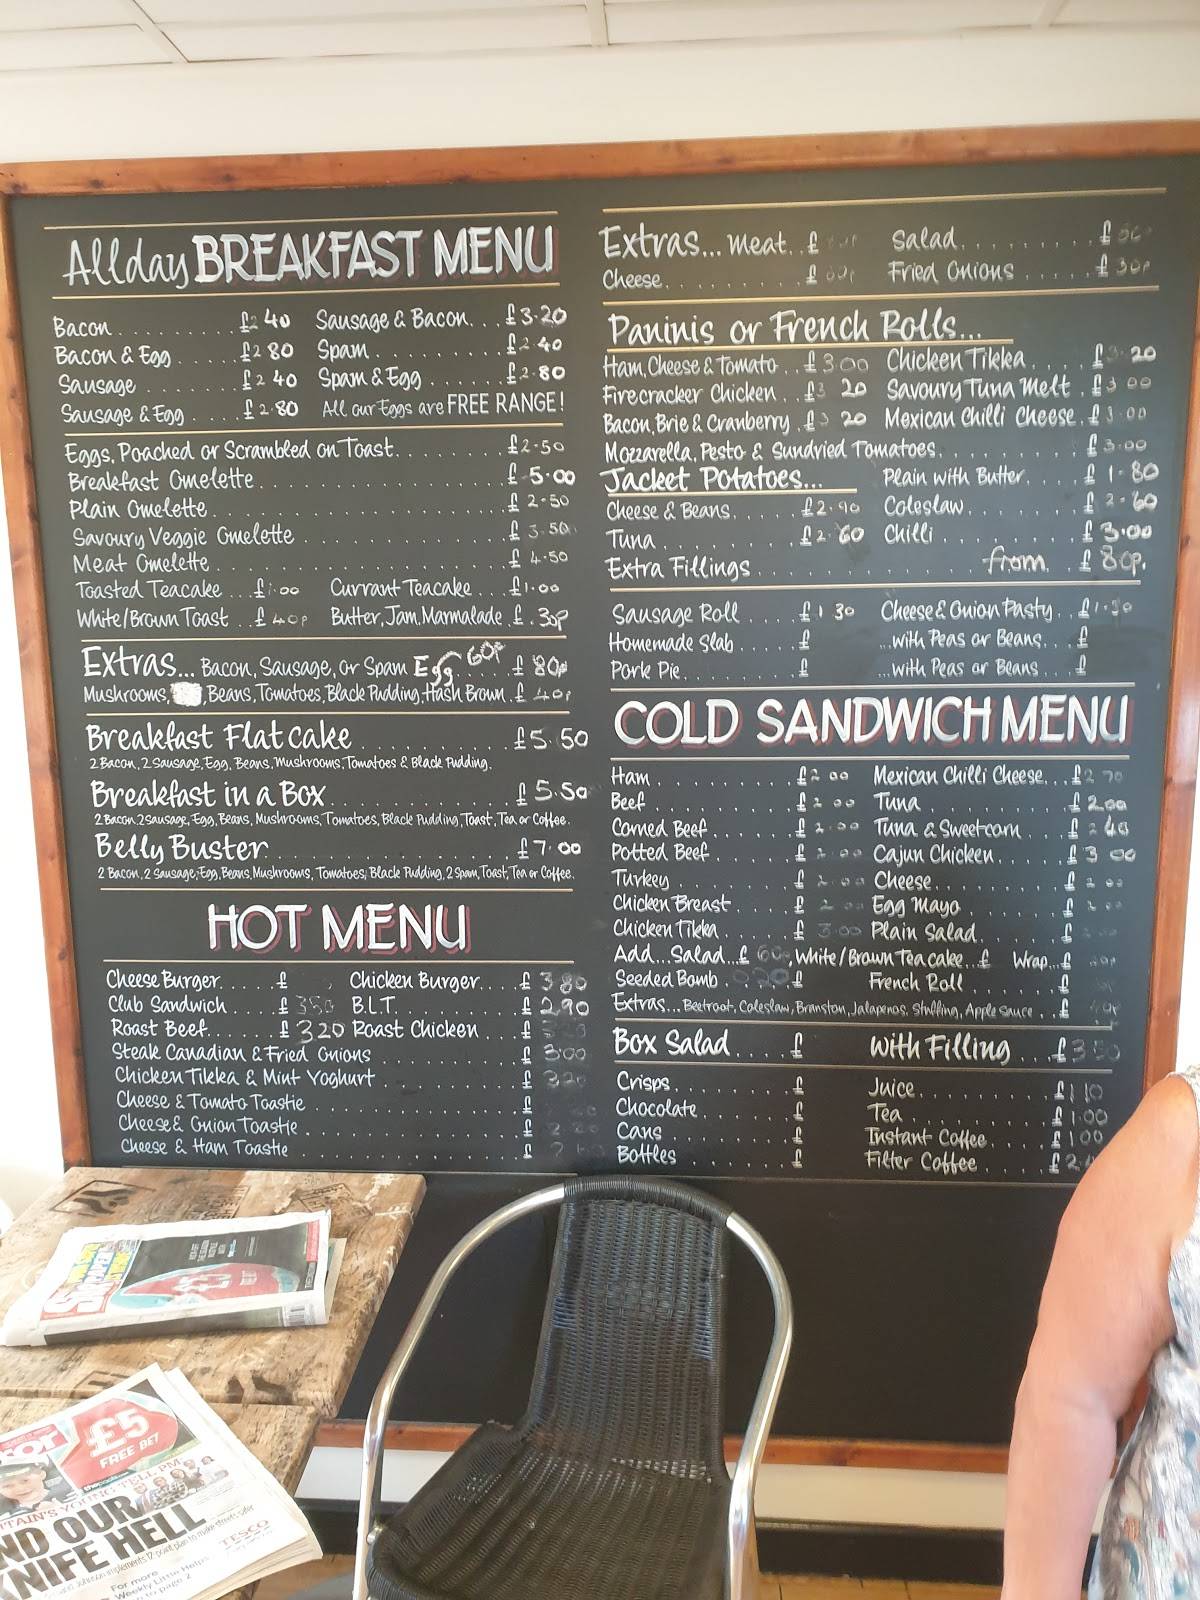 Allday BREAKFAST MENU
Bacon......... £2 40 Sausage & Bacon... £3.20
Bacon & Egg..... £2 80 Spam......... £2.40
Sausage........ £2 40 Spam & Egg...... £2.80
Sausage & Egg.... £2.80 All our Eggs are FREE RANGE!
Eggs, Poached or Scrambled on Toast........ £2.50
Breakfast Omelette.................. £5.00
Plain Omelette.................... £2.50
Savoury Veggie Omelette.............. £3.50
Meat Omelette.................... £4.50
Toasted Teacake... £1.00 Currant Teacake... £1.00
White/Brown Toast.. £40p Butter, Jam, Marmalade. £.30p
Extras... Bacon, Sausage, or Spam Egg 60p.... £80p
Mushrooms, Beans, Tomatoes, Black Pudding, Hash Brown. £40p
Breakfast Flatcake.......... £5.50
2 Bacon, 2 Sausage, Egg, Beans, Mushrooms, Tomatoes & Black Pudding.
Breakfast in a Box............ £5.50
2 Bacon, 2 Sausage, Egg, Beans, Mushrooms, Tomatoes, Black Pudding, Toast, Tea or Coffee.
Belly Buster................ £7.00
2 Bacon, 2 Sausage, Egg, Beans, Mushrooms, Tomatoes, Black Pudding, 2 Spam, Toast, Tea or Coffee.
HOT MENU
Cheese Burger..... £ Chicken Burger.... £3.80
Club Sandwich.... £3.50 B.L.T.......... £2.90
Roast Beef...... £3.20 Roast Chicken... £
Steak Canadian & Fried Onions.......... £3.00
Chicken Tikka & Mint Yoghurt.......... £3.20
Cheese & Tomato Toastie............. £
Cheese & Onion Toastie.............. £
Cheese & Ham Toastie............... £
Extras... Meat.. £ Salad......... £
Cheese......... £ Fried Onions..... £30p
Paninis or French Rolls...
Ham, Cheese & Tomato.. £3.00 Chicken Tikka.... £3.20
Firecracker Chicken.. £3 20 Savoury Tuna Melt. £3.00
Bacon, Brie & Cranberry. £3 20 Mexican Chilli Cheese. £3.00
Mozzarella, Pesto & Sundried Tomatoes......... £3.00
Jacket Potatoes... Plain with Butter.... £1.80
Cheese & Beans..... £2.90 Coleslaw........ £2.60
Tuna.......... £2.60 Chilli......... £3.00
Extra Fillings............ from.. £80p.
Sausage Roll.... £1 30 Cheese & Onion Pasty.. £
Homemade Slab.... £ ...with Peas or Beans... £
Pork Pie........ £ ...with Peas or Beans... £
COLD SANDWICH MENU
Ham.......... £2 00 Mexican Chilli Cheese... £2 70
Beef.......... £2 00 Tuna.......... £2.00
Corned Beef...... £2.00 Tuna & Sweetcorn... £2 40
Potted Beef...... £2.00 Cajun Chicken..... £3 00
Turkey......... £2.00 Cheese......... £2 00
Chicken Breast.... £2.00 Egg Mayo....... £
Chicken Tikka..... £3.00 Plain Salad...... £
Add... Salad... £60p White/Brown Teacake.. £ Wrap... £
Seeded Bomb... £ French Roll...... £
Extras... Beetroot, Coleslaw, Branston, Jalapenos, Stuffing, Apple Sauce.. £
Box Salad.... £ With Filling... £3.50
Crisps......... £ Juice......... £1.10
Chocolate....... £ Tea.......... £1.00
Cans.......... £ Instant Coffee.... £1 00
Bottles........ £ Filter Coffee.... £2.
£5
FREE BET
AND OUR
KNIFE HELL
TESCO
For more
Weekly Little Helps
to page 2